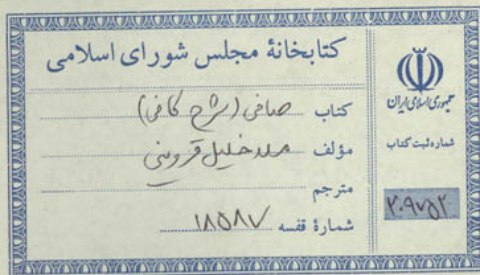 کتابخانهٔ مجلس شورای اسلامی
کتاب صافی (شرح کافی)
مؤلف ملا خلیل قزوینی
مترجم
شمارهٔ قفسه ۱۸۵۸۷
جمهوری اسلامی ایران
شماره ثبت کتاب
۲۰۹۷۵۲